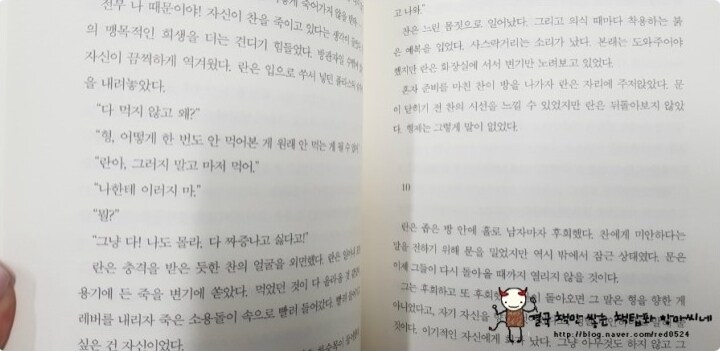 전부 나 때문이야! 자신이 찬을 죽이고 있다는 생각이
의 맹목적인 희생을 더는 견디기 힘들었다.
자신이 끔찍하게 역겨웠다. 란은 입으로 쑤셔 넣던
을 내려놓았다.
"다 먹지 않고 왜?"
"형, 어떻게 한 번도 안 먹어본 게 원래 안 먹는 게 될 수
"란아, 그러지 말고 마저 먹어."
"나한테 이러지 마."
"뭘?"
"그냥 다! 나도 몰라, 다 짜증나고 싫다고!"
란은 충격을 받은 듯한 찬의 얼굴을 외면했다. 란은
용기에 든 죽을 변기에 쏟았다. 먹었던 것이 다 올라올 것
레버를 내리자 죽은 소용돌이 속으로 빨려 들어갔다.
싶은 건 자신이었다.
고 나와."
찬은 느린 몸짓으로 일어났다. 그리고 의식 때마다 착용하는 붉
은 예복을 입었다. 사스락거리는 소리가 났다. 본래는 도와주어야
했지만 란은 화장실에 서서 변기만 노려보고 있었다.
혼자 준비를 마친 찬이 방을 나가자 란은 자리에 주저앉았다. 문
이 닫히기 전 찬의 시선을 느낄 수 있었지만 란은 뒤돌아보지 않았
다. 형제는 그렇게 말이 없었다.
10
란은 좁은 방 안에 홀로 남자마자 후회했다. 찬에게 미안하다는
말을 전하기 위해 문을 밀었지만 역시 밖에서 잠근 상태였다. 문은
이제 그들이 다시 돌아올 때까지 열리지 않을 것이다.
그는 후회하고 또 후회했 돌아오면 그 말은 형을 향한 게
아니었다고, 자기 자신을
것이다. 이기적인 자신에게 났다. 그냥 아무것도 하지 않고 그
결국 책만 쌓는 책탑화 할마씨네
http://blog.naver.com/red0524